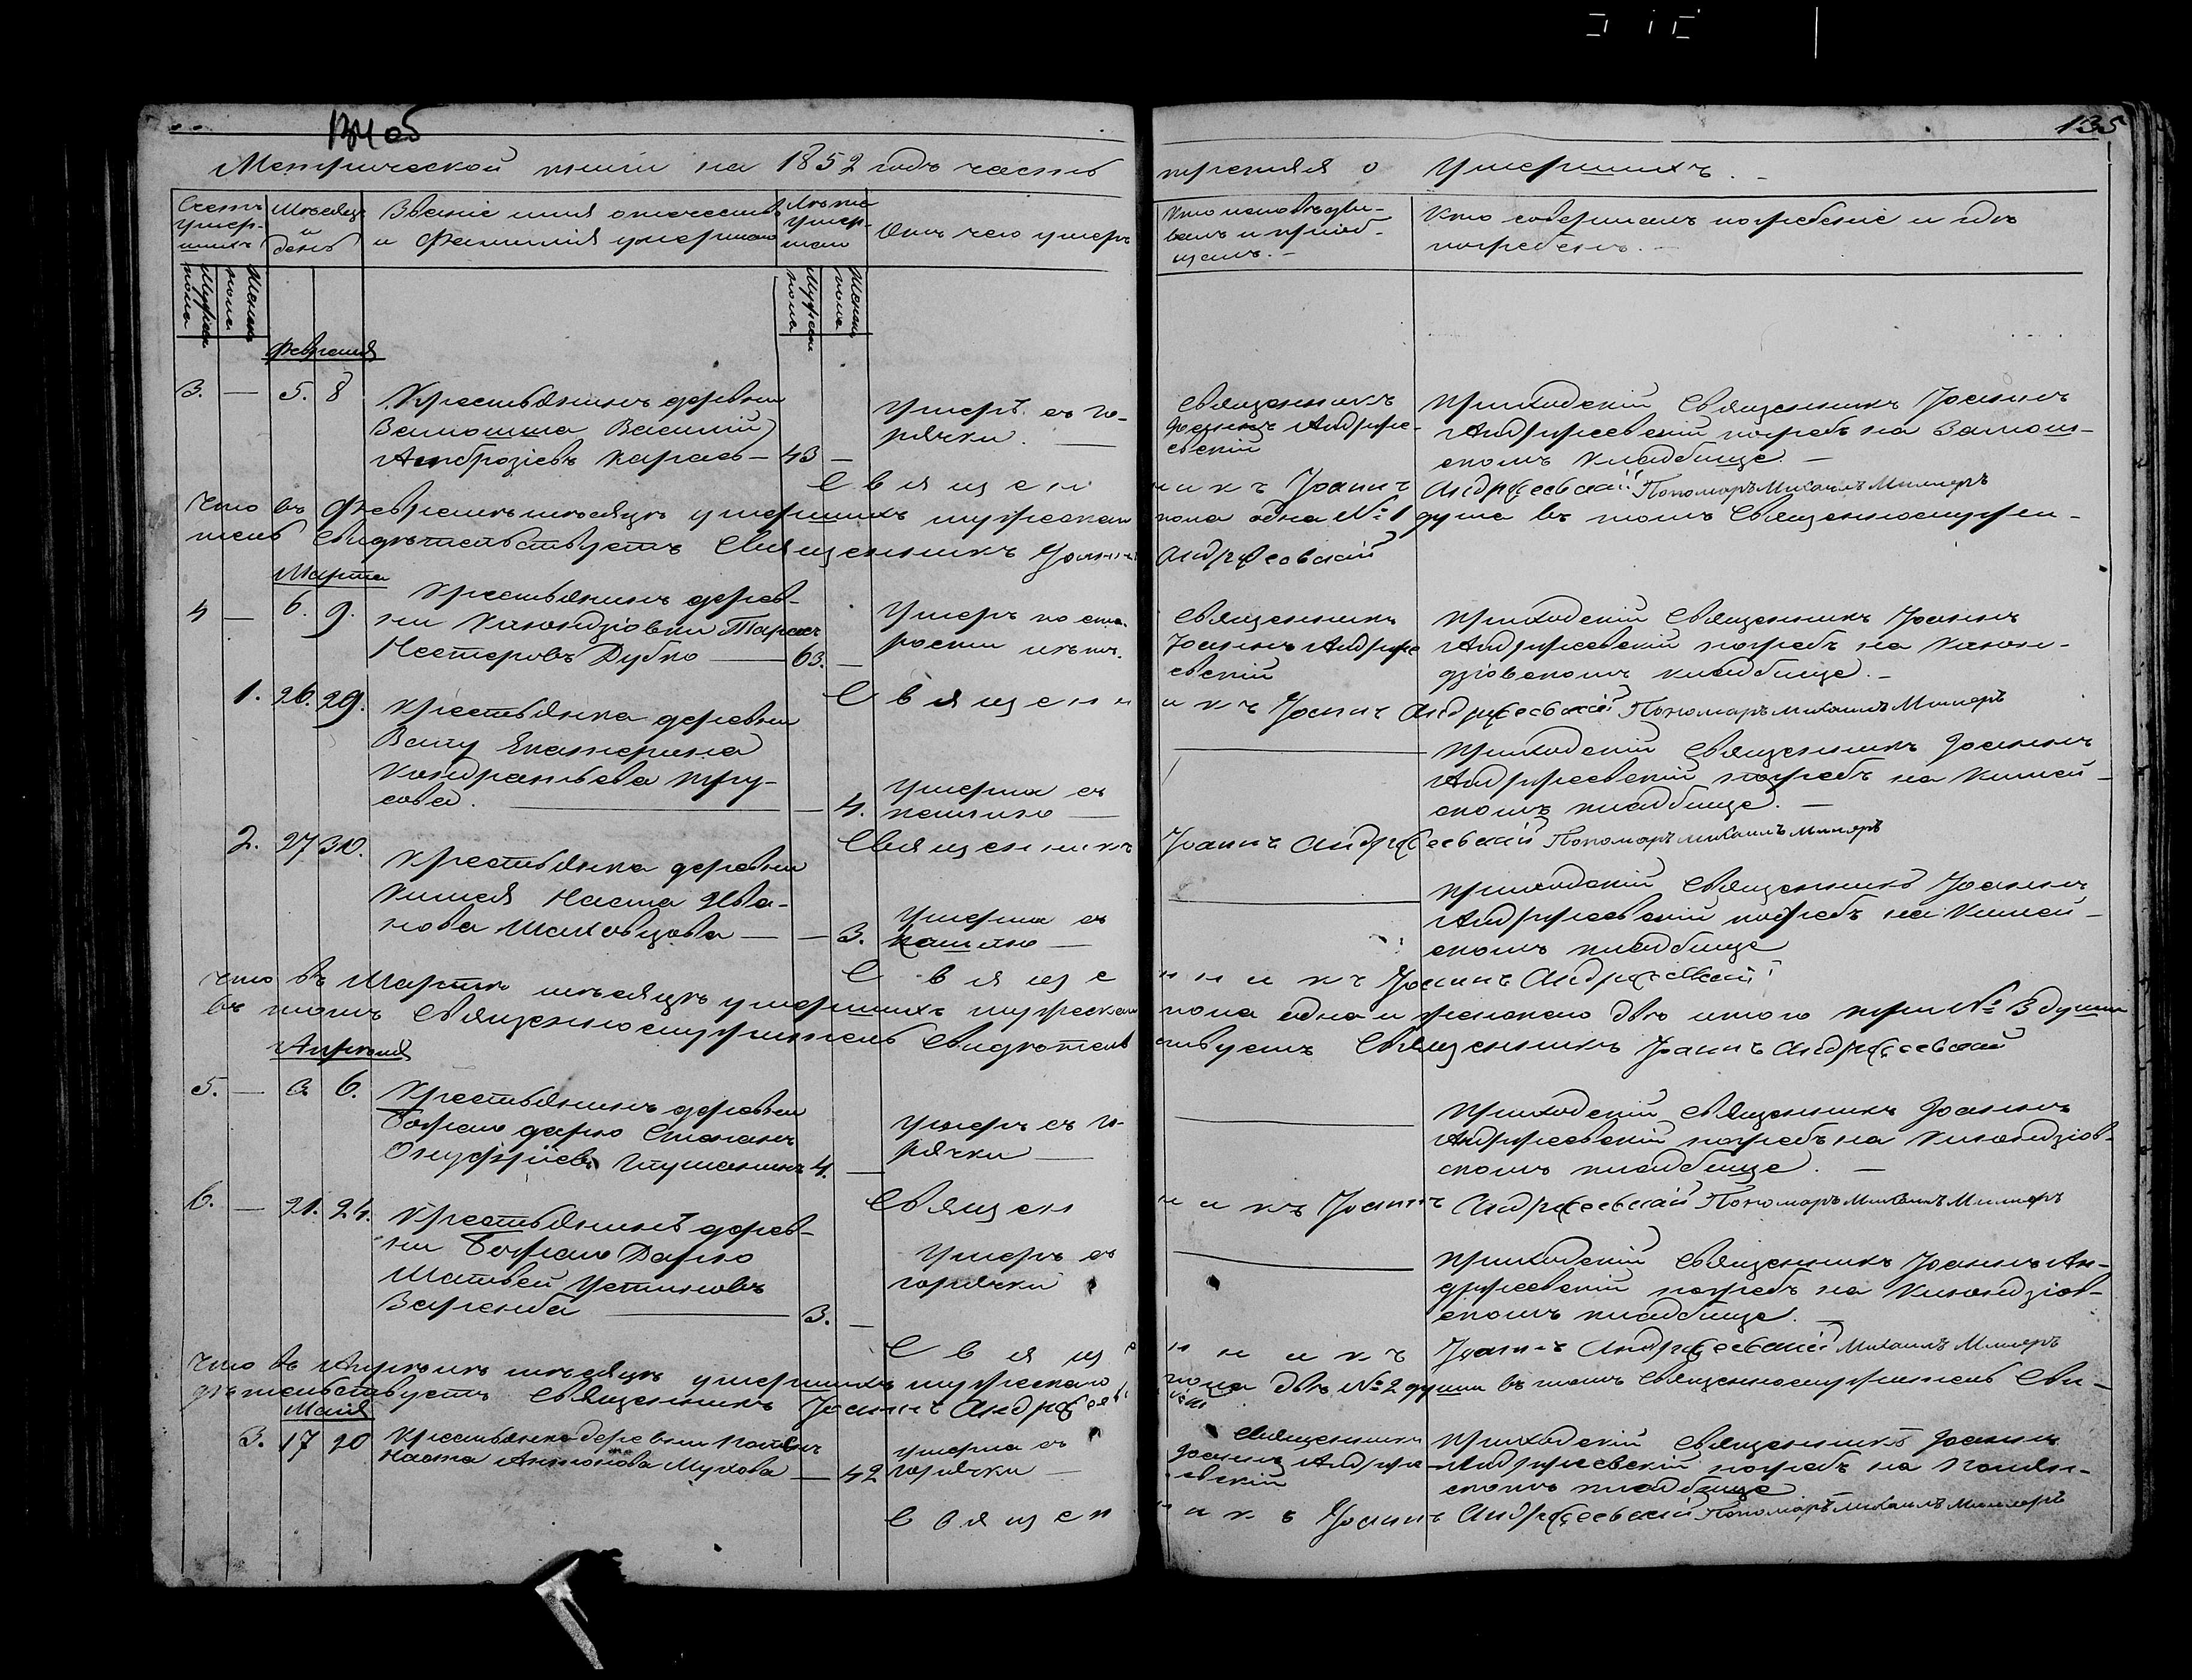 134 об
135
Метрической книги на 1852 годъ часть третья о Умершихъ.
Счетъ умер-шихъ
Мѣсяцъ и день
Званіе имя отечество и фамилія умершаго
Лѣта умер-шаго
Отъ чего умеръ
Кто исповѣды-валъ и пріоб-щалъ.
Кто совершалъ погребеніе и гдѣ погребенъ.
Мужеска пола
Женска пола
Мужеска пола
Женска пола
Февраля
3. — 5. 8
Крестьянинъ деревни
Замошша Василій
Амброзіевъ Карась — 43 —
Умеръ съ го-
рячки. —
Священникъ
Іоаннъ Андрże-
евскій
Приходскій Священникъ Іоаннъ
Андржеевскій погребъ на Замош-
скомъ кладбище. —
Священникъ Іоаннъ Андржеевскій Пономаръ Михаилъ Миллеръ
Что въ Февралѣ мѣсяцѣ умершихъ мужескаго пола одна № 1 душа въ томъ Священнослужи-
тель Свидѣтельствуетъ Священникъ Іоаннъ Андржеевскій
Марта
4 — 6. 9.
Крестьянинъ дерев-
ни Тарасъ
Нестеровъ Дубко — 63. —
Умеръ по ста-
рости лѣтъ.
Священникъ
Іоаннъ Андрже
евскій
Приходскій Священникъ Іоаннъ
Андржеевскій погребъ на
кладбище. —
Священникъ Іоаннъ Андржеевскій Пономаръ Михаилъ Миллеръ
1. 26. 29.
Крестьянка деревни
Екатерина
Кондратьева Тру-
сова. — — 4.
Умерла съ
кашлю —
Приходскій Священникъ Іоаннъ
Андржеевскій погребъ на
скомъ кладбище. —
Священникъ Іоаннъ Андржеевскій Пономаръ Михаилъ Миллеръ
2. 27 30.
Крестьянка деревни
Наста Ива-
нова — — 3.
Умерла съ
кашлю —
Приходскій Священникъ Іоаннъ
Андржеевскій погребъ на
скомъ кладбище
Священникъ Іоаннъ Андржеевскій
Что въ Мартѣ мѣсяцѣ умершихъ мужескаго пола одна и женскаго двѣ итого три № 3 души
въ томъ Священнослужитель Свидѣтельствуетъ Священникъ Іоаннъ Андржеевскій
Апрѣля
5. — 3 6.
Крестьянинъ деревни
Степанъ
Онуфріевъ 4. —
Умеръ съ го-
рячки —
Приходскій Священникъ Іоаннъ
Андржеевскій погребъ на
скомъ кладбище. —
Священникъ Іоаннъ Андржеевскій Пономаръ Михаилъ Миллеръ
6. — 21. 24.
Крестьянинъ дерев-
ни
Матвей Устиновъ
3. —
Умеръ съ
горячки
Приходскій Священникъ Іоаннъ Ан-
држеевскій погребъ на
скомъ кладбище. —
Священникъ Іоаннъ Андржеевскій Михаилъ Миллеръ
Что въ Апрѣлѣ мѣсяцѣ умершихъ мужескаго пола двѣ № 2 души въ томъ Священнослужитель Сви-
дѣтельствуетъ Священникъ Іоаннъ Андржеевскій
Майя
3. 17 20
Крестьянка деревни
Наста Антонова Мухова — 42
умерла съ
горячки —
Священникъ
Іоаннъ Андрже
евскій
Приходскій Священникъ Іоаннъ
Андржеевскій погребъ на
скомъ кладбище
Священникъ Іоаннъ Андржеевскій Пономаръ Михаилъ Миллеръ